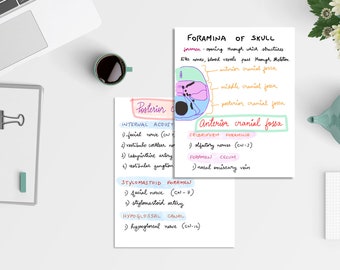 FORAMINA OF SKULL
foramen - opening through which structures
like nerves, blood vessels pass through skeleton
anterior cranial fossa
middle cranial fossa
posterior cranial fossa
Anterior cranial fossa
CRIBRIFORM FORAMINA
1) olfactory nerves (CN-1)
FORAMEN CECUM
1) nasal emissary vein
Posterior
INTERNAL ACOUSTIC
1) facial nerve (CN
2) vestibulo cochlear
3) labyrinthine artery
4) vestibular ganglion
STYLOMASTOID FORAMEN
1) facial nerve (CN-7)
2) stylomastoid artery
HYPOGLOSSAL CANAL
1) hypoglossal nerve (CN-12)